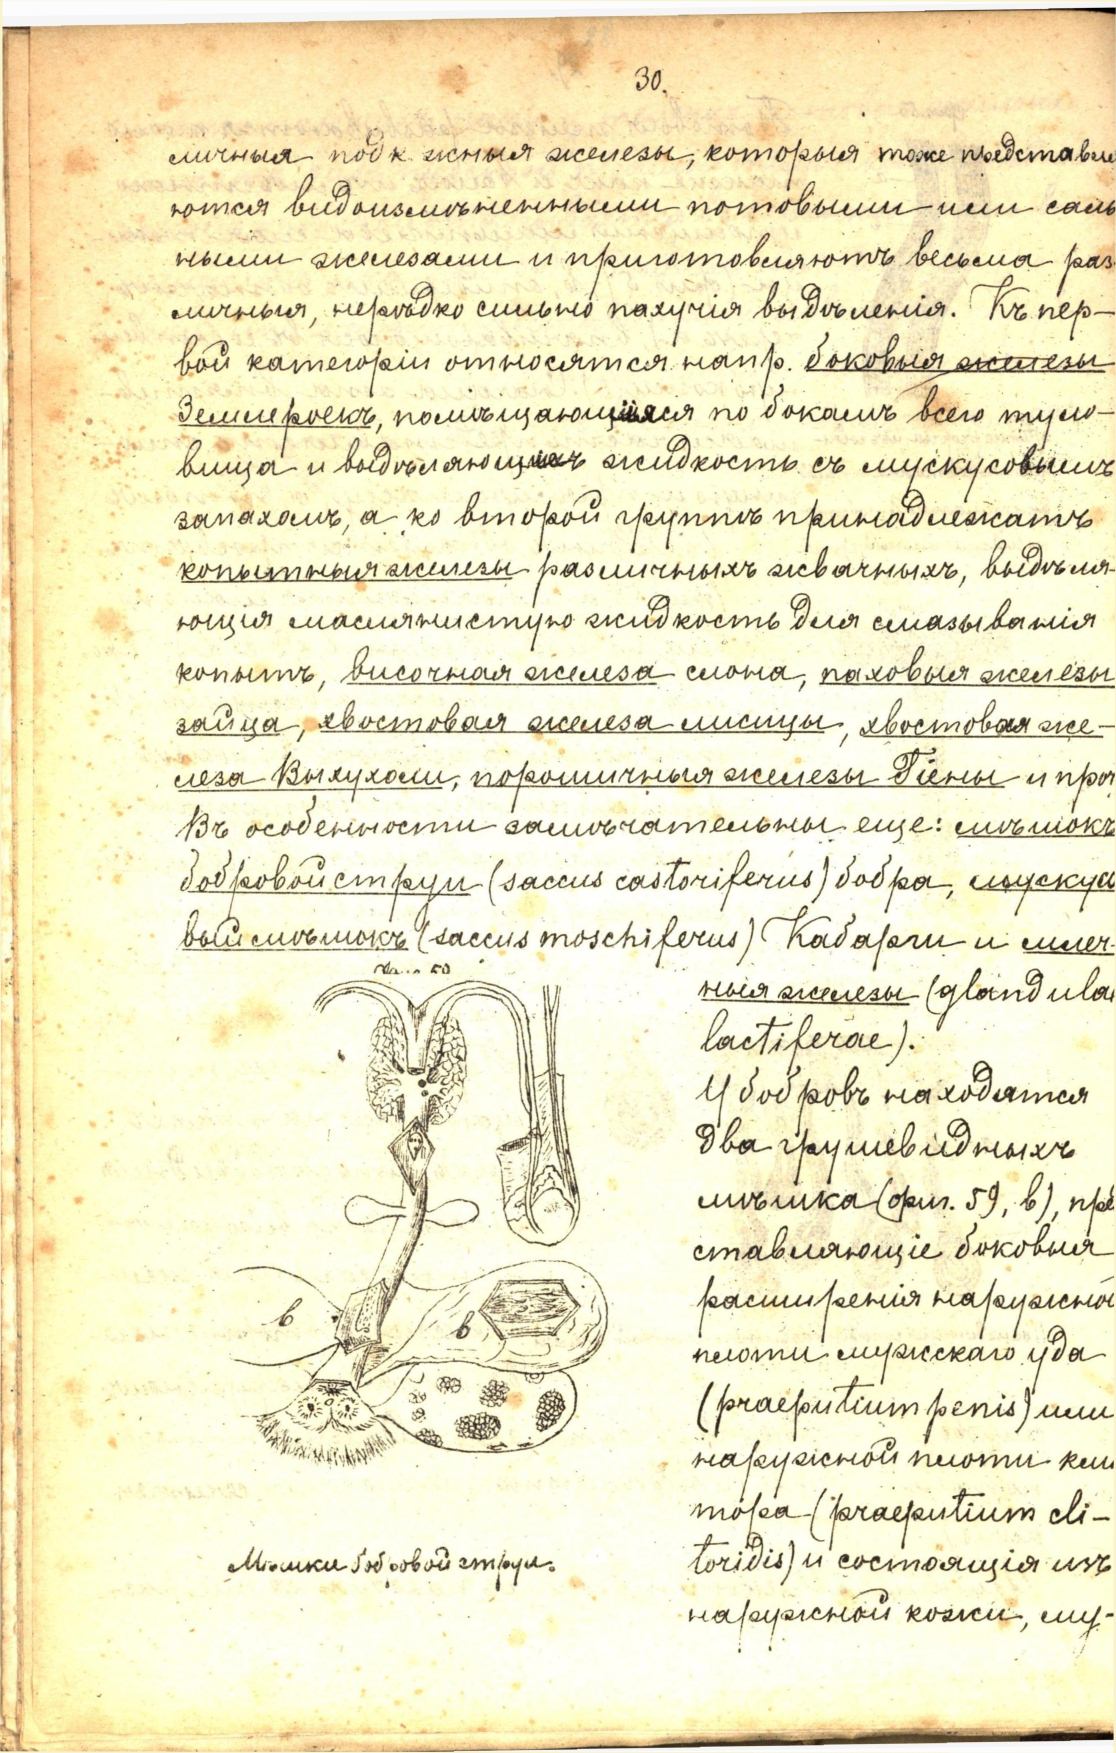 30.
личныя подкожныя железы, которыя тоже представля
ются видоизмѣненными потовыми или саль
ными железами и приготовляютъ весьма раз
личныя, нерѣдко сильно пахучія выдѣленія. Къ пер-
вой категоріи относятся напр. боковыя железы
Землероекъ, помѣщающіяся по бокамъ всего туло-
вища и выдѣляющихъ жидкость съ мускусовымъ
запахомъ, а ко второй группѣ принадлежатъ
копытныя железы различныхъ жвачныхъ, выдѣля-
ющія маслянистую жидкость для смазыванія
копытъ, височная железа слона, паховыя железы
зайца, хвостовая железа лисицы, хвостовая же-
леза Выхухоли, порошичныя железы Гіены и проч
Въ особенности замѣчательны еще: мѣшокъ
бобровой струи (saccus castoriferus) бобра, мускусо
вый мѣшокъ (saccus moschiferus) Кабарги и млеч-
ныя железы (glandulae
lactiferae).
У бобровъ находятся
два грушевидныхъ
мѣшка (фиг. 59, в), пре
ставляющіе боковыя
расширенія наружной
плоти мужскаго уда
(praeputium penis) или
наружной плоти кли
тора (praeputium cli-
toridis) и состоящія изъ
наружной кожи, му-
59
в
в
Мѣшки бобровой струи.